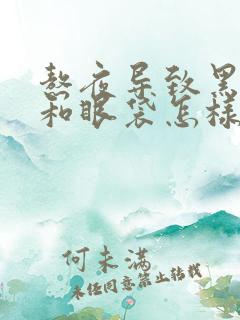 熬夜导致黑
和眼袋怎样
何未满
未经同意禁止转载